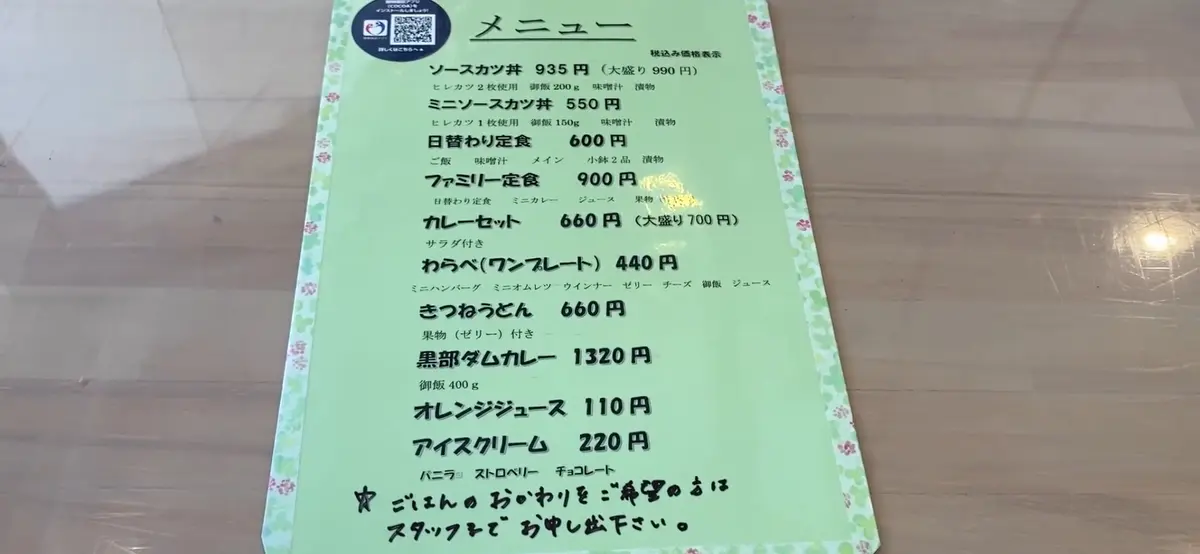 (COCOA)を
インストールしましょう!
詳しくはこちらへ
メニュー
税込み価格表示
ソースカツ丼 935円 (大盛り990円)
ヒレカツ2枚使用 御飯200g 味噌汁 漬物
ミニソースカツ丼 550円
ヒレカツ1枚使用 御飯150g 味噌汁 漬物
日替わり定食 600円
ご飯 味噌汁 メイン 小鉢2品 漬物
ファミリー定食 900円
日替わり定食 ミニカレー ジュース 果物
カレーセット 660円 (大盛り700円)
サラダ付き
わらべ(ワンプレート) 440円
ミニハンバーグ ミニオムレツ ウインナー ゼリー チーズ 御飯 ジュース
きつねうどん 660円
果物(ゼリー)付き
黒部ダムカレー 1320円
御飯400g
オレンジジュース 110円
アイスクリーム 220円
バニラ ストロベリー チョコレート
☆ ごはんのおかわりをご希望の方は
スタッフまでお申し出下さい。